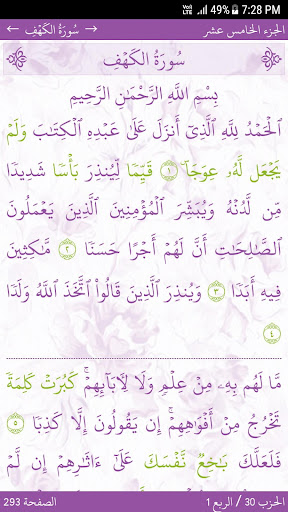 49% 7:28 PM
الجزء الخامس عشر
→ سُورَةُ الكَهْفِ ←
سُورَةُ الكَهْفِ
بِسْمِ اللَّهِ الرَّحْمَٰنِ الرَّحِيمِ
ٱلْحَمْدُ لِلَّهِ ٱلَّذِىٓ أَنزَلَ عَلَىٰ عَبْدِهِ ٱلْكِتَٰبَ وَلَمْ
يَجْعَل لَّهُۥ عِوَجَاۜ ١ قَيِّمًا لِّيُنذِرَ بَأْسًا شَدِيدًا
مِّن لَّدُنْهُ وَيُبَشِّرَ ٱلْمُؤْمِنِينَ ٱلَّذِينَ يَعْمَلُونَ
ٱلصَّٰلِحَٰتِ أَنَّ لَهُمْ أَجْرًا حَسَنًا ٢ مَّٰكِثِينَ
فِيهِ أَبَدًا ٣ وَيُنذِرَ ٱلَّذِينَ قَالُوا۟ ٱتَّخَذَ ٱللَّهُ وَلَدًا
٤
مَّا لَهُم بِهِۦ مِنْ عِلْمٍ وَلَا لِءَابَآئِهِمْ ۚ كَبُرَتْ كَلِمَةً
تَخْرُجُ مِنْ أَفْوَٰهِهِمْ ۚ إِن يَقُولُونَ إِلَّا كَذِبًا ٥
فَلَعَلَّكَ بَٰخِعٌ نَّفْسَكَ عَلَىٰٓ ءَاثَٰرِهِمْ إِن لَّمْ
الحزب 30 / الربع 1
الصفحة 293